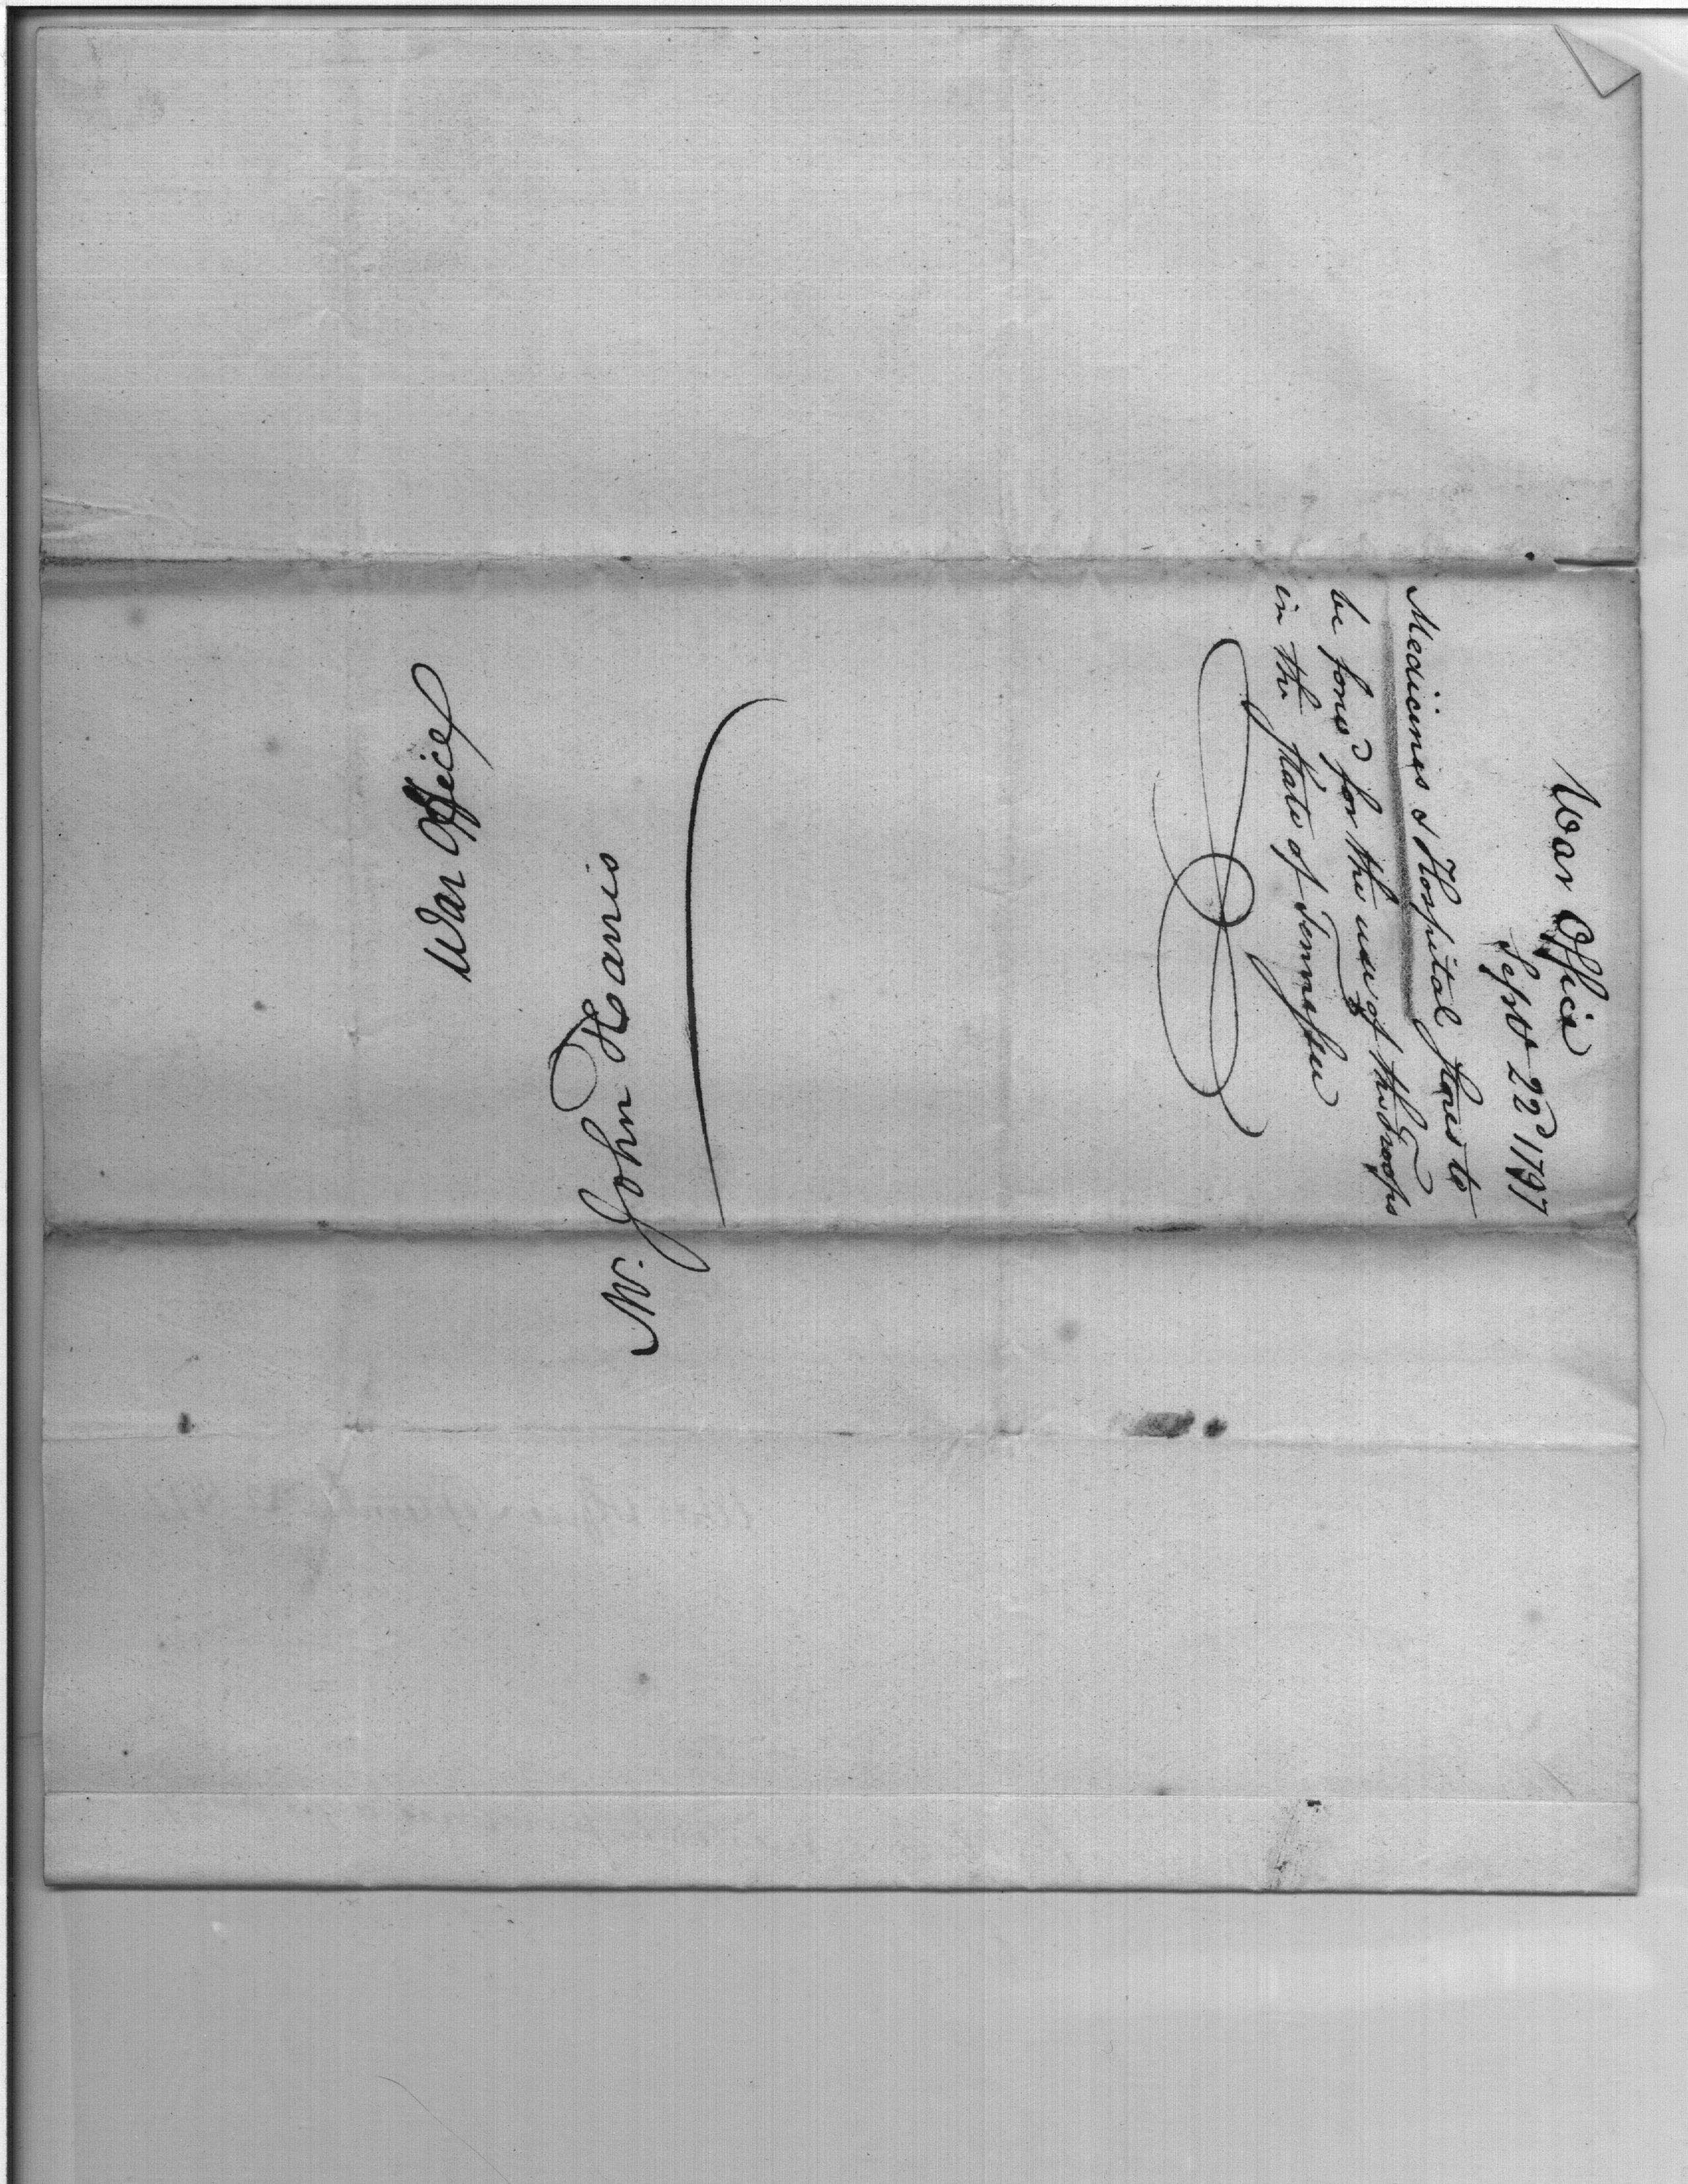 War Office
Sept 22d 1797
Medicines & Hospital stores to
be forwd for the use of the Troops
in the state of Tennessee
War Office
Mr. John Harris